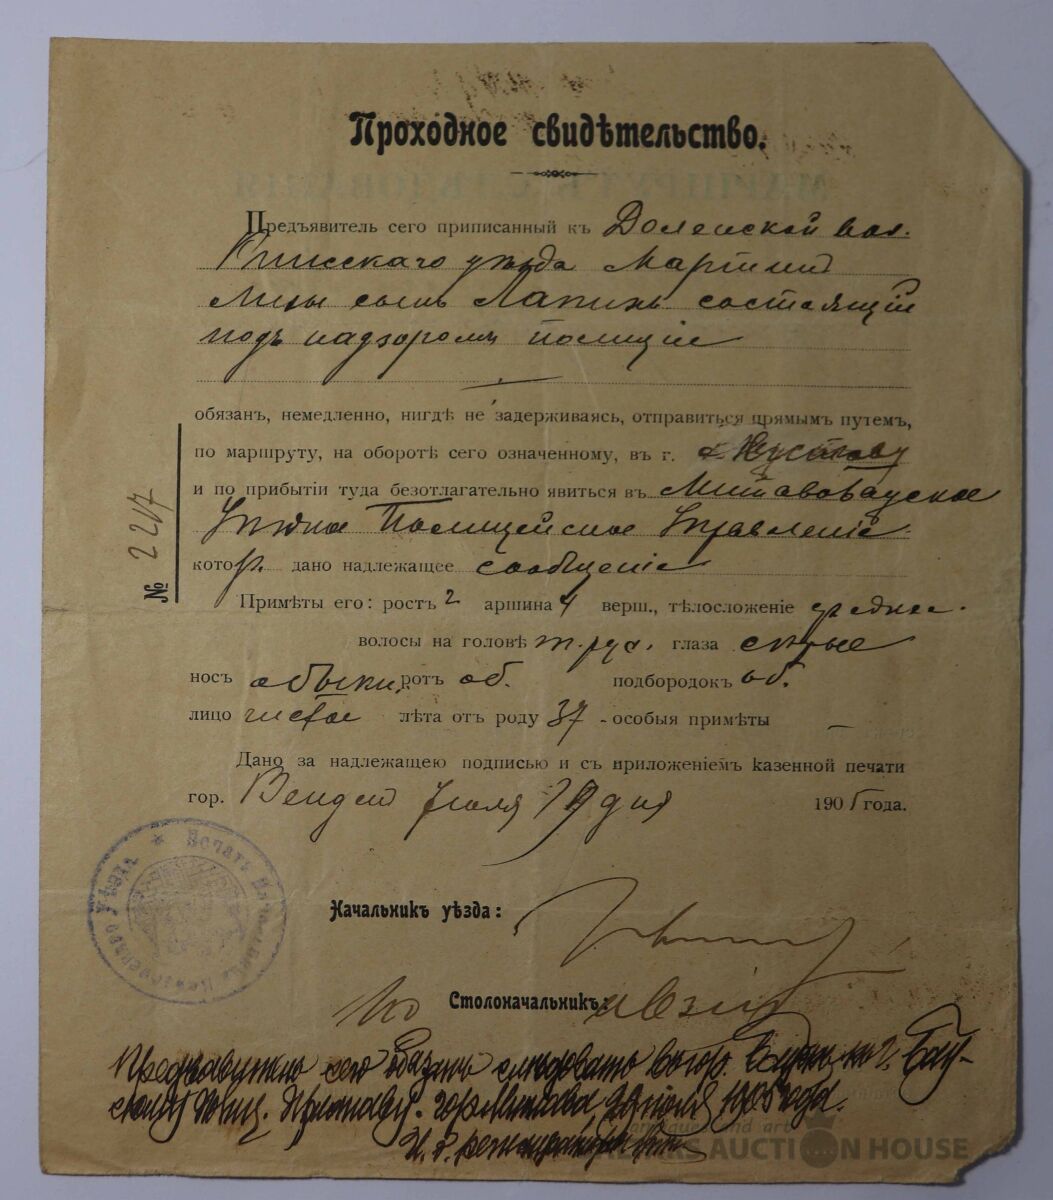 Проходное свидѣтельство.
Предъявитель сего приписанный къ Долейской вол.
уѣзда Мартынъ
сынъ Лапинъ состоящій
подъ надзоромъ полиціи
обязанъ, немедленно, нигдѣ не задерживаясь, отправиться прямымъ путемъ,
по маршруту, на оборотѣ сего означенному, въ г.
и по прибытіи туда безотлагательно явиться въ Митавобауское
Уѣздное Полицейское Управленіе
котор. дано надлежащее сообщеніе
№ 2217
Примѣты его: ростъ 2 аршина 4 верш., тѣлосложеніе среднее.
волосы на головѣ т. рус. глаза сѣрые
носъ обыкн. ротъ об. подбородокъ об.
лицо чистое лѣта отъ роду 37 - особыя примѣты —
Дано за надлежащею подписью и съ приложеніемъ казенной печати
гор. Венден Іюля 19 дня 1905 года.
Печать Начальника Уѣзда
Начальникъ уѣзда:
Столоначальникъ:
сего обязанъ слѣдовать въ гор. Бауск
гор. Митава, іюля 1905 года.
antiques and art
AUCTION HOUSE